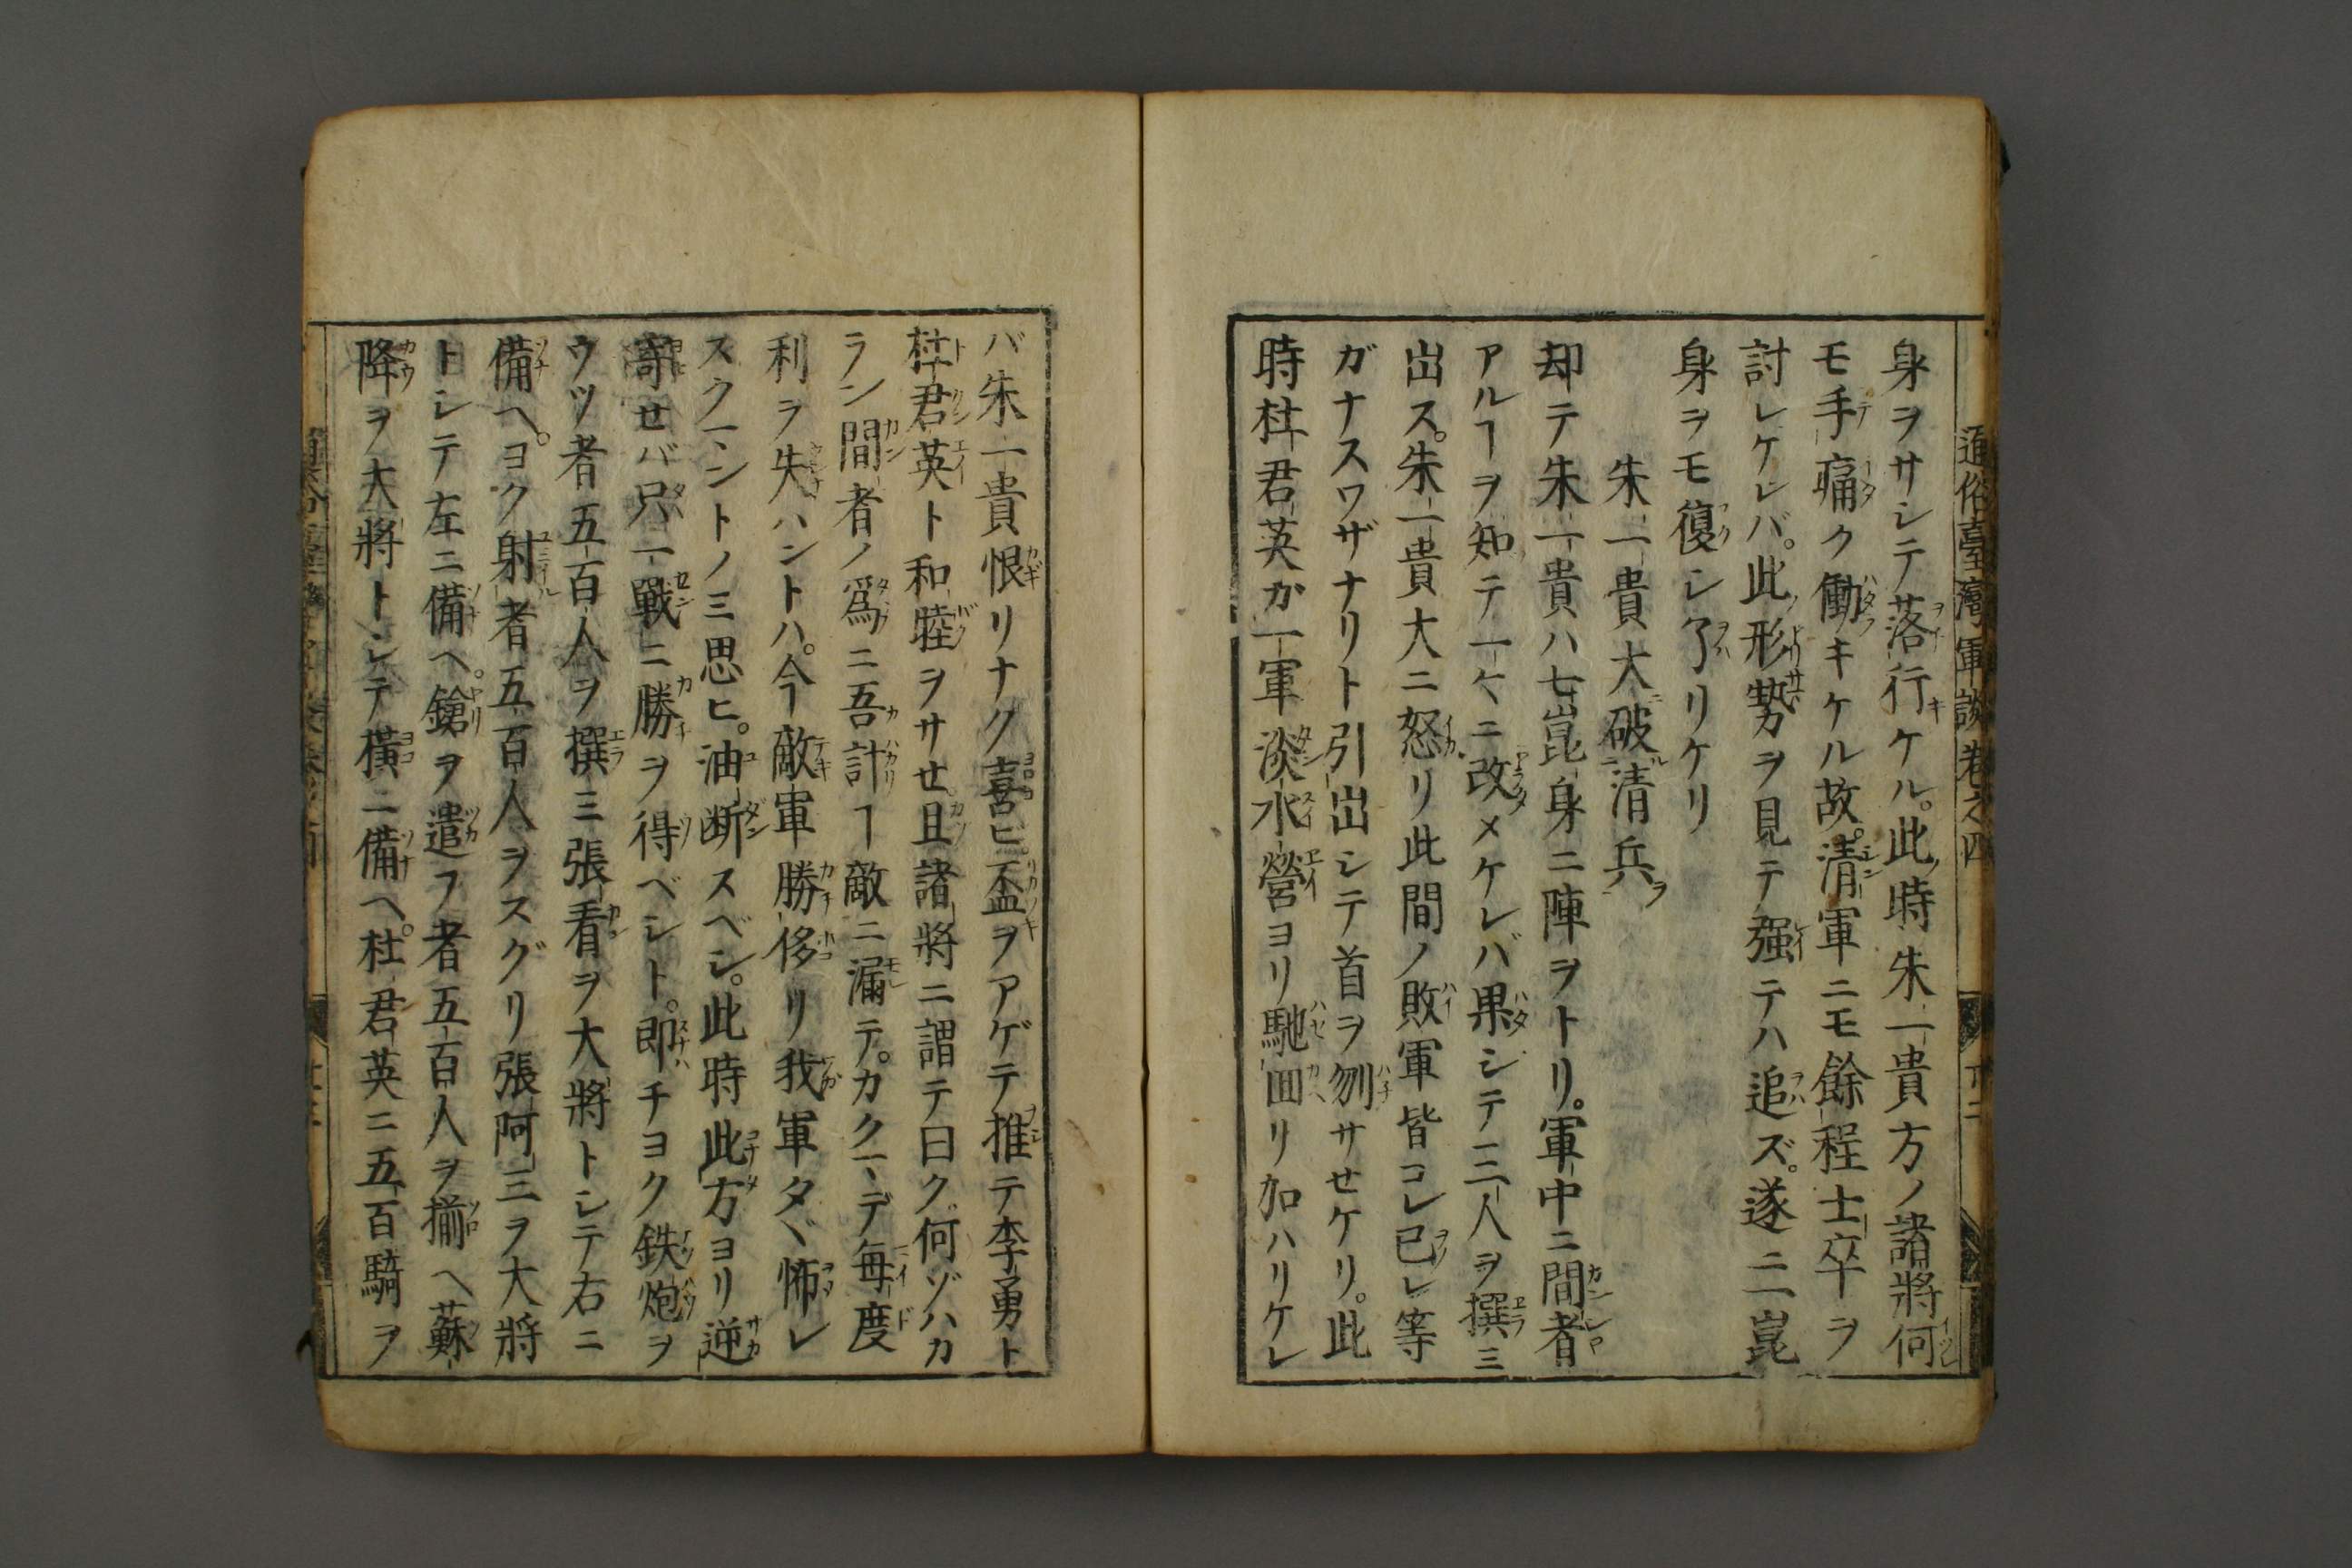 通俗臺灣軍談卷之四
身ヲサシテ落行ケル。此時朱一貴方ノ諸將何
モ手痛ク働キケル故。清軍ニモ餘程士卒ヲ
討レケレバ。此形勢ヲ見テ强テハ追ズ。遂ニ二崑
身ヲモ復シ了リケリ
朱一貴大破清兵ヲ
却テ朱一貴ハ七崑身ニ陣ヲトリ。軍中ニ間者
アルヿヲ知テ一々ニ改メケレバ果シテ三人ヲ撰ミ
出ス。朱一貴大ニ怒リ此間ノ敗軍皆コレ已レ等
ガナスワザナリト引出シテ首ヲ刎サセケリ。此
時杜君英カ一軍淡水營ヨリ馳回リ加ハリケレ
バ朱一貴恨リナク喜ビ盃ヲアゲテ推テ李勇ト
杜君英ト和睦ヲサセ且諸將ニ謂テ曰ク。何ゾハカ
ラン間者ノ爲ニ吾計ヿ敵ニ漏テ。カクマデ每度
利ヲ失ハントハ。今敵軍勝侈リ我軍タヾ怖レ
スクマントノミ思ヒ。油断スベシ。此時此方ヨリ逆
寄セバ只一戰ニ勝ヲ得ベシト。即チヨク鉄炮ヲ
ウツ者五百人ヲ撰ミ張看ヲ大將トシテ右ニ
備ヘ。ヨク射者五百人ヲスグリ張阿三ヲ大將
トシテ左ニ備ヘ。鎗ヲ遣フ者五百人ヲ揃ヘ蘇
降ヲ大將トシテ横ニ備ヘ。杜君英ニ五百騎ヲ